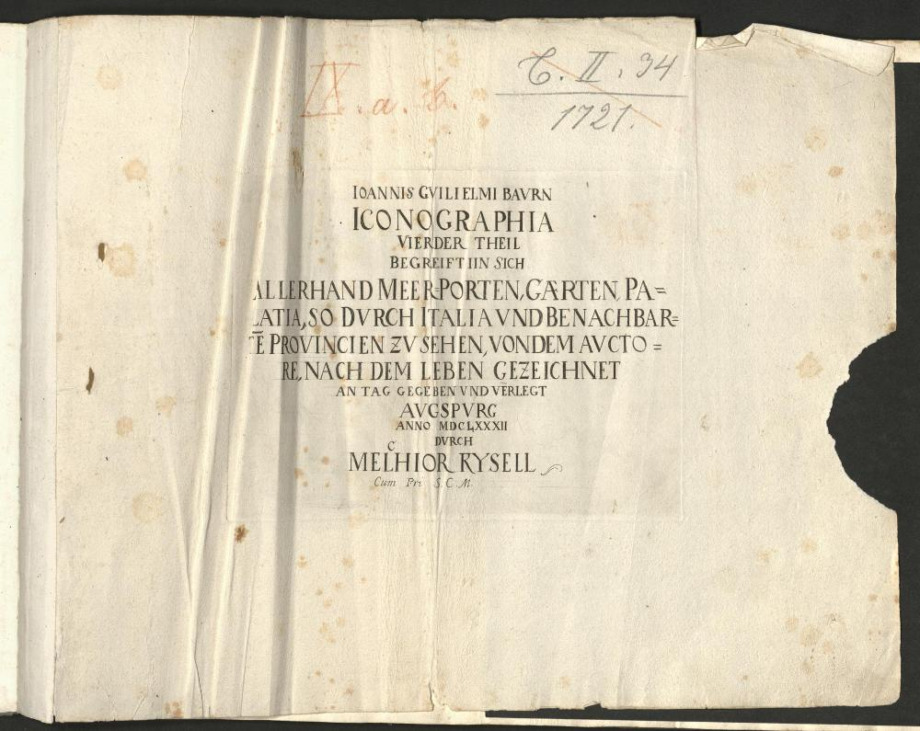 IX. a. 6.
C. II. 94
1721.
IOANNIS GVILIELMI BAVRN
ICONOGRAPHIA
VIERDER THEIL
BEGREIFT IIN SICH
ALLERHAND MEER=PORTEN, GÆRTEN, PA=
LATIA, SO DVRCH ITALIA VND BENACHBAR=
TĒ PROVINCIEN ZV SEHEN, VON DEM AVCTO=
RE, NACH DEM LEBEN GEZEICHNET
AN TAG GEGEBEN VND VERLEGT
AVGSPVRG
ANNO MDCLXXXII
DVRCH
MELCHIOR KYSELL
Cum Pr: S. C. M.